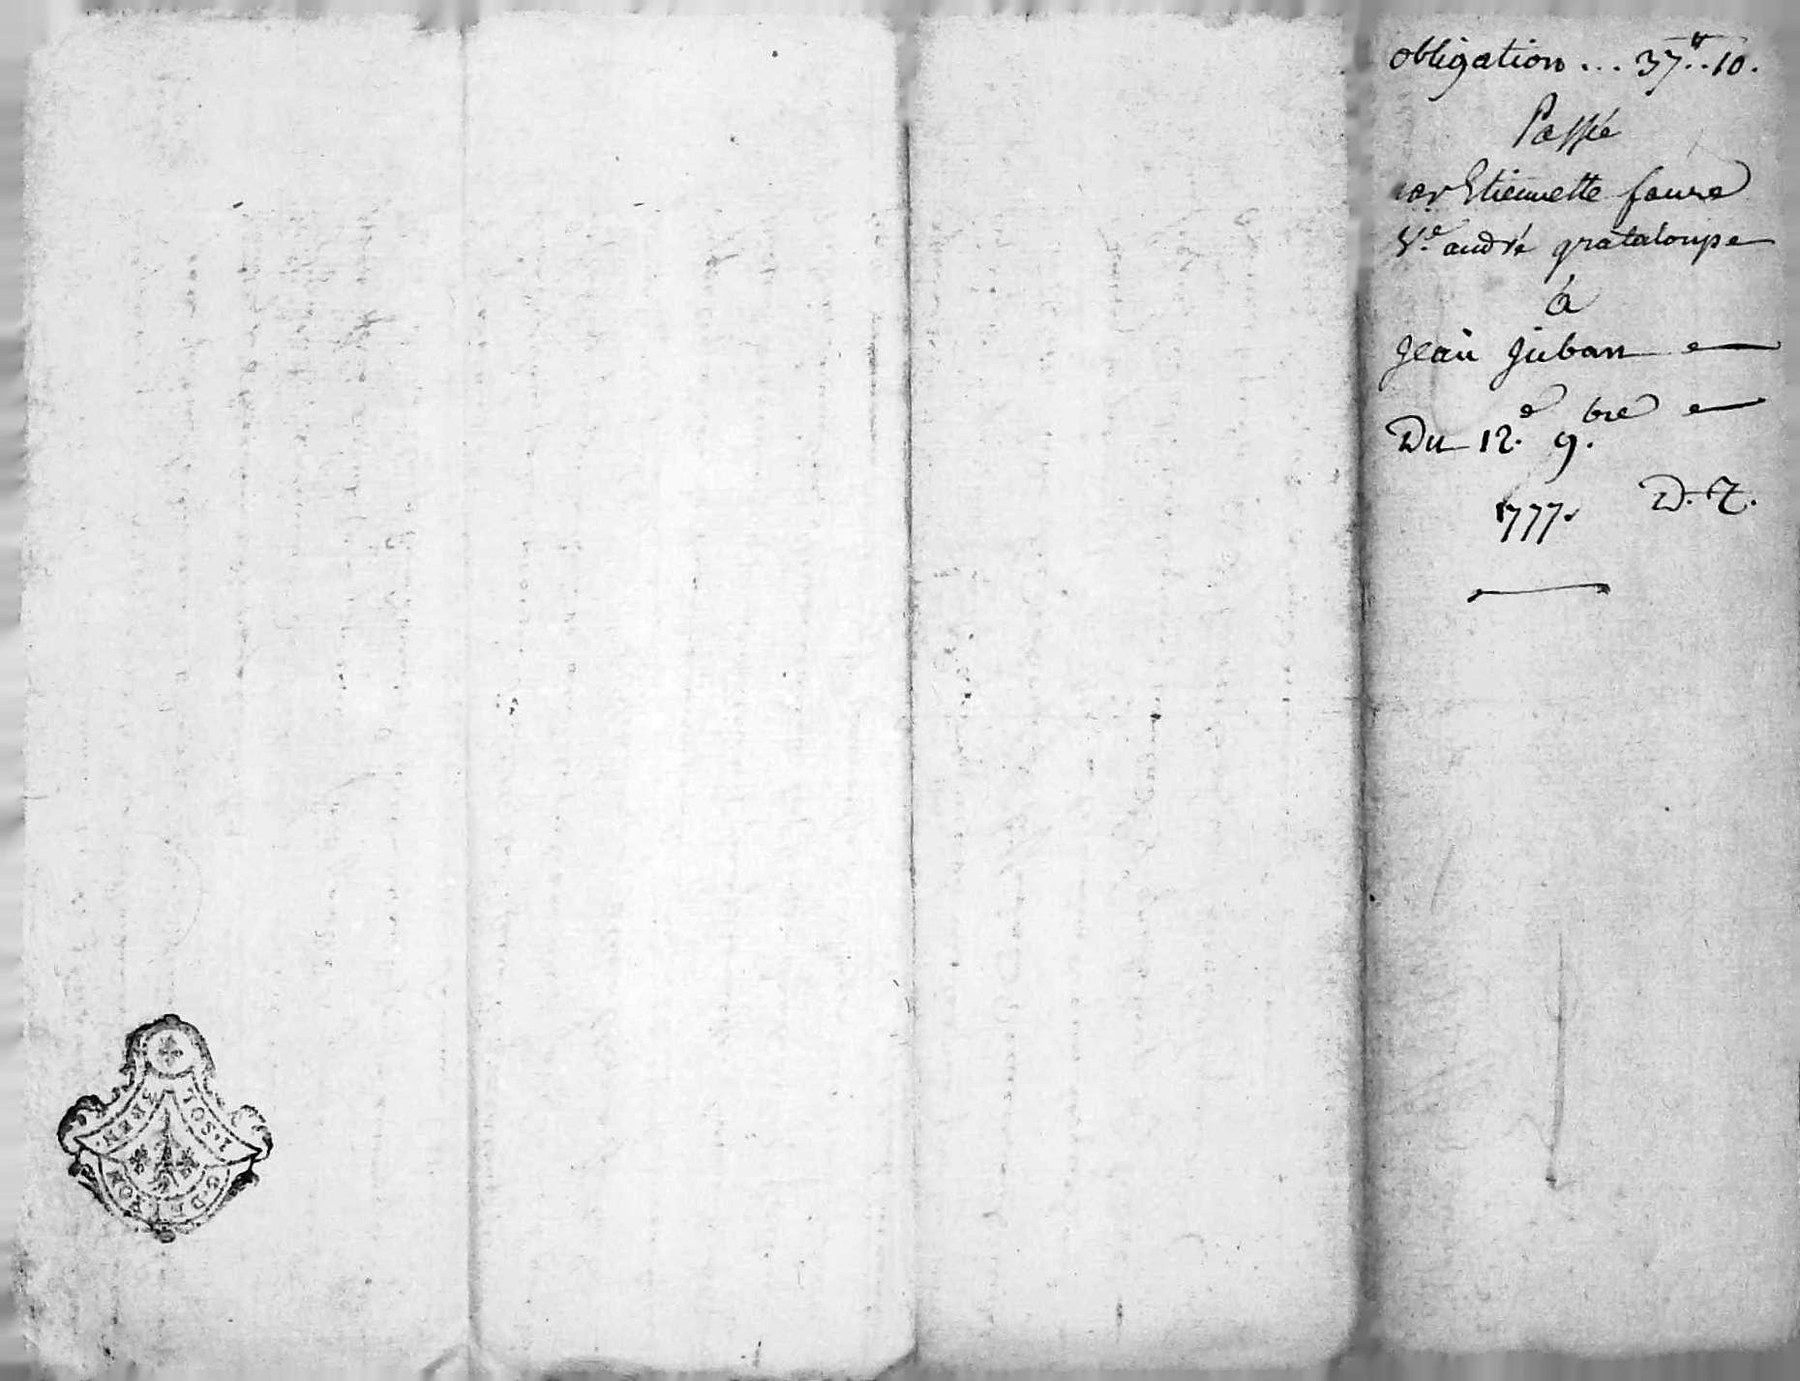 obligation ... 37 ₶ .. 10.
Passé
par Etiennette faure
Ve. andré grataloupe
à
Jean Juban
Du 12.e 9.bre
1777. D. T.
2. SOLS
G. DE LYON